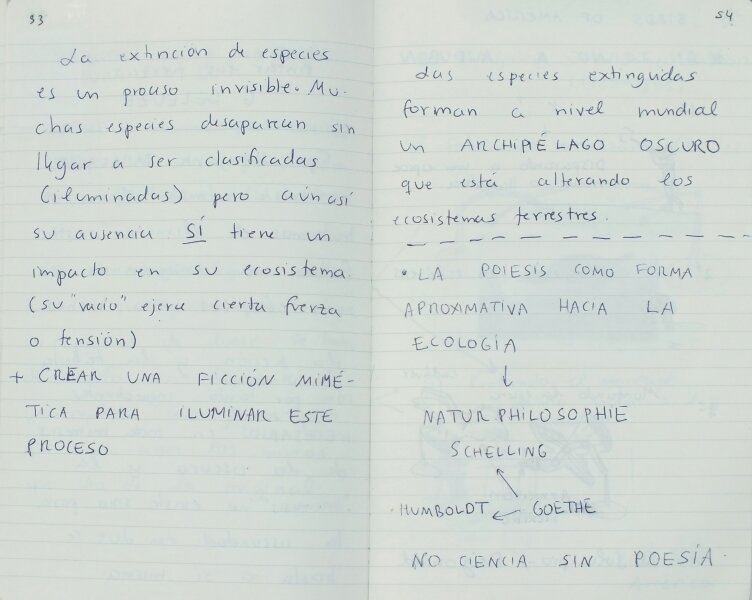 53
La extinción de especies
es un proceso invisible. Mu-
chas especies desaparecen sin
llegar a ser clasificadas
(iluminadas) pero aún así
su ausencia SÍ tiene un
impacto en su ecosistema.
(su "vacío" ejerce cierta fuerza
o tensión)
+ CREAR UNA FICCIÓN MIMÉ-
TICA PARA ILUMINAR ESTE
PROCESO
54
Las especies extinguidas
forman a nivel mundial
un ARCHIPIÉLAGO OSCURO
que está alterando los
ecosistemas terrestres.
• LA POIESIS COMO FORMA
APROXIMATIVA HACIA LA
ECOLOGÍA
↓
NATURPHILOSOPHIE
SCHELLING
HUMBOLDT ← GOETHE
NO CIENCIA SIN POESÍA.